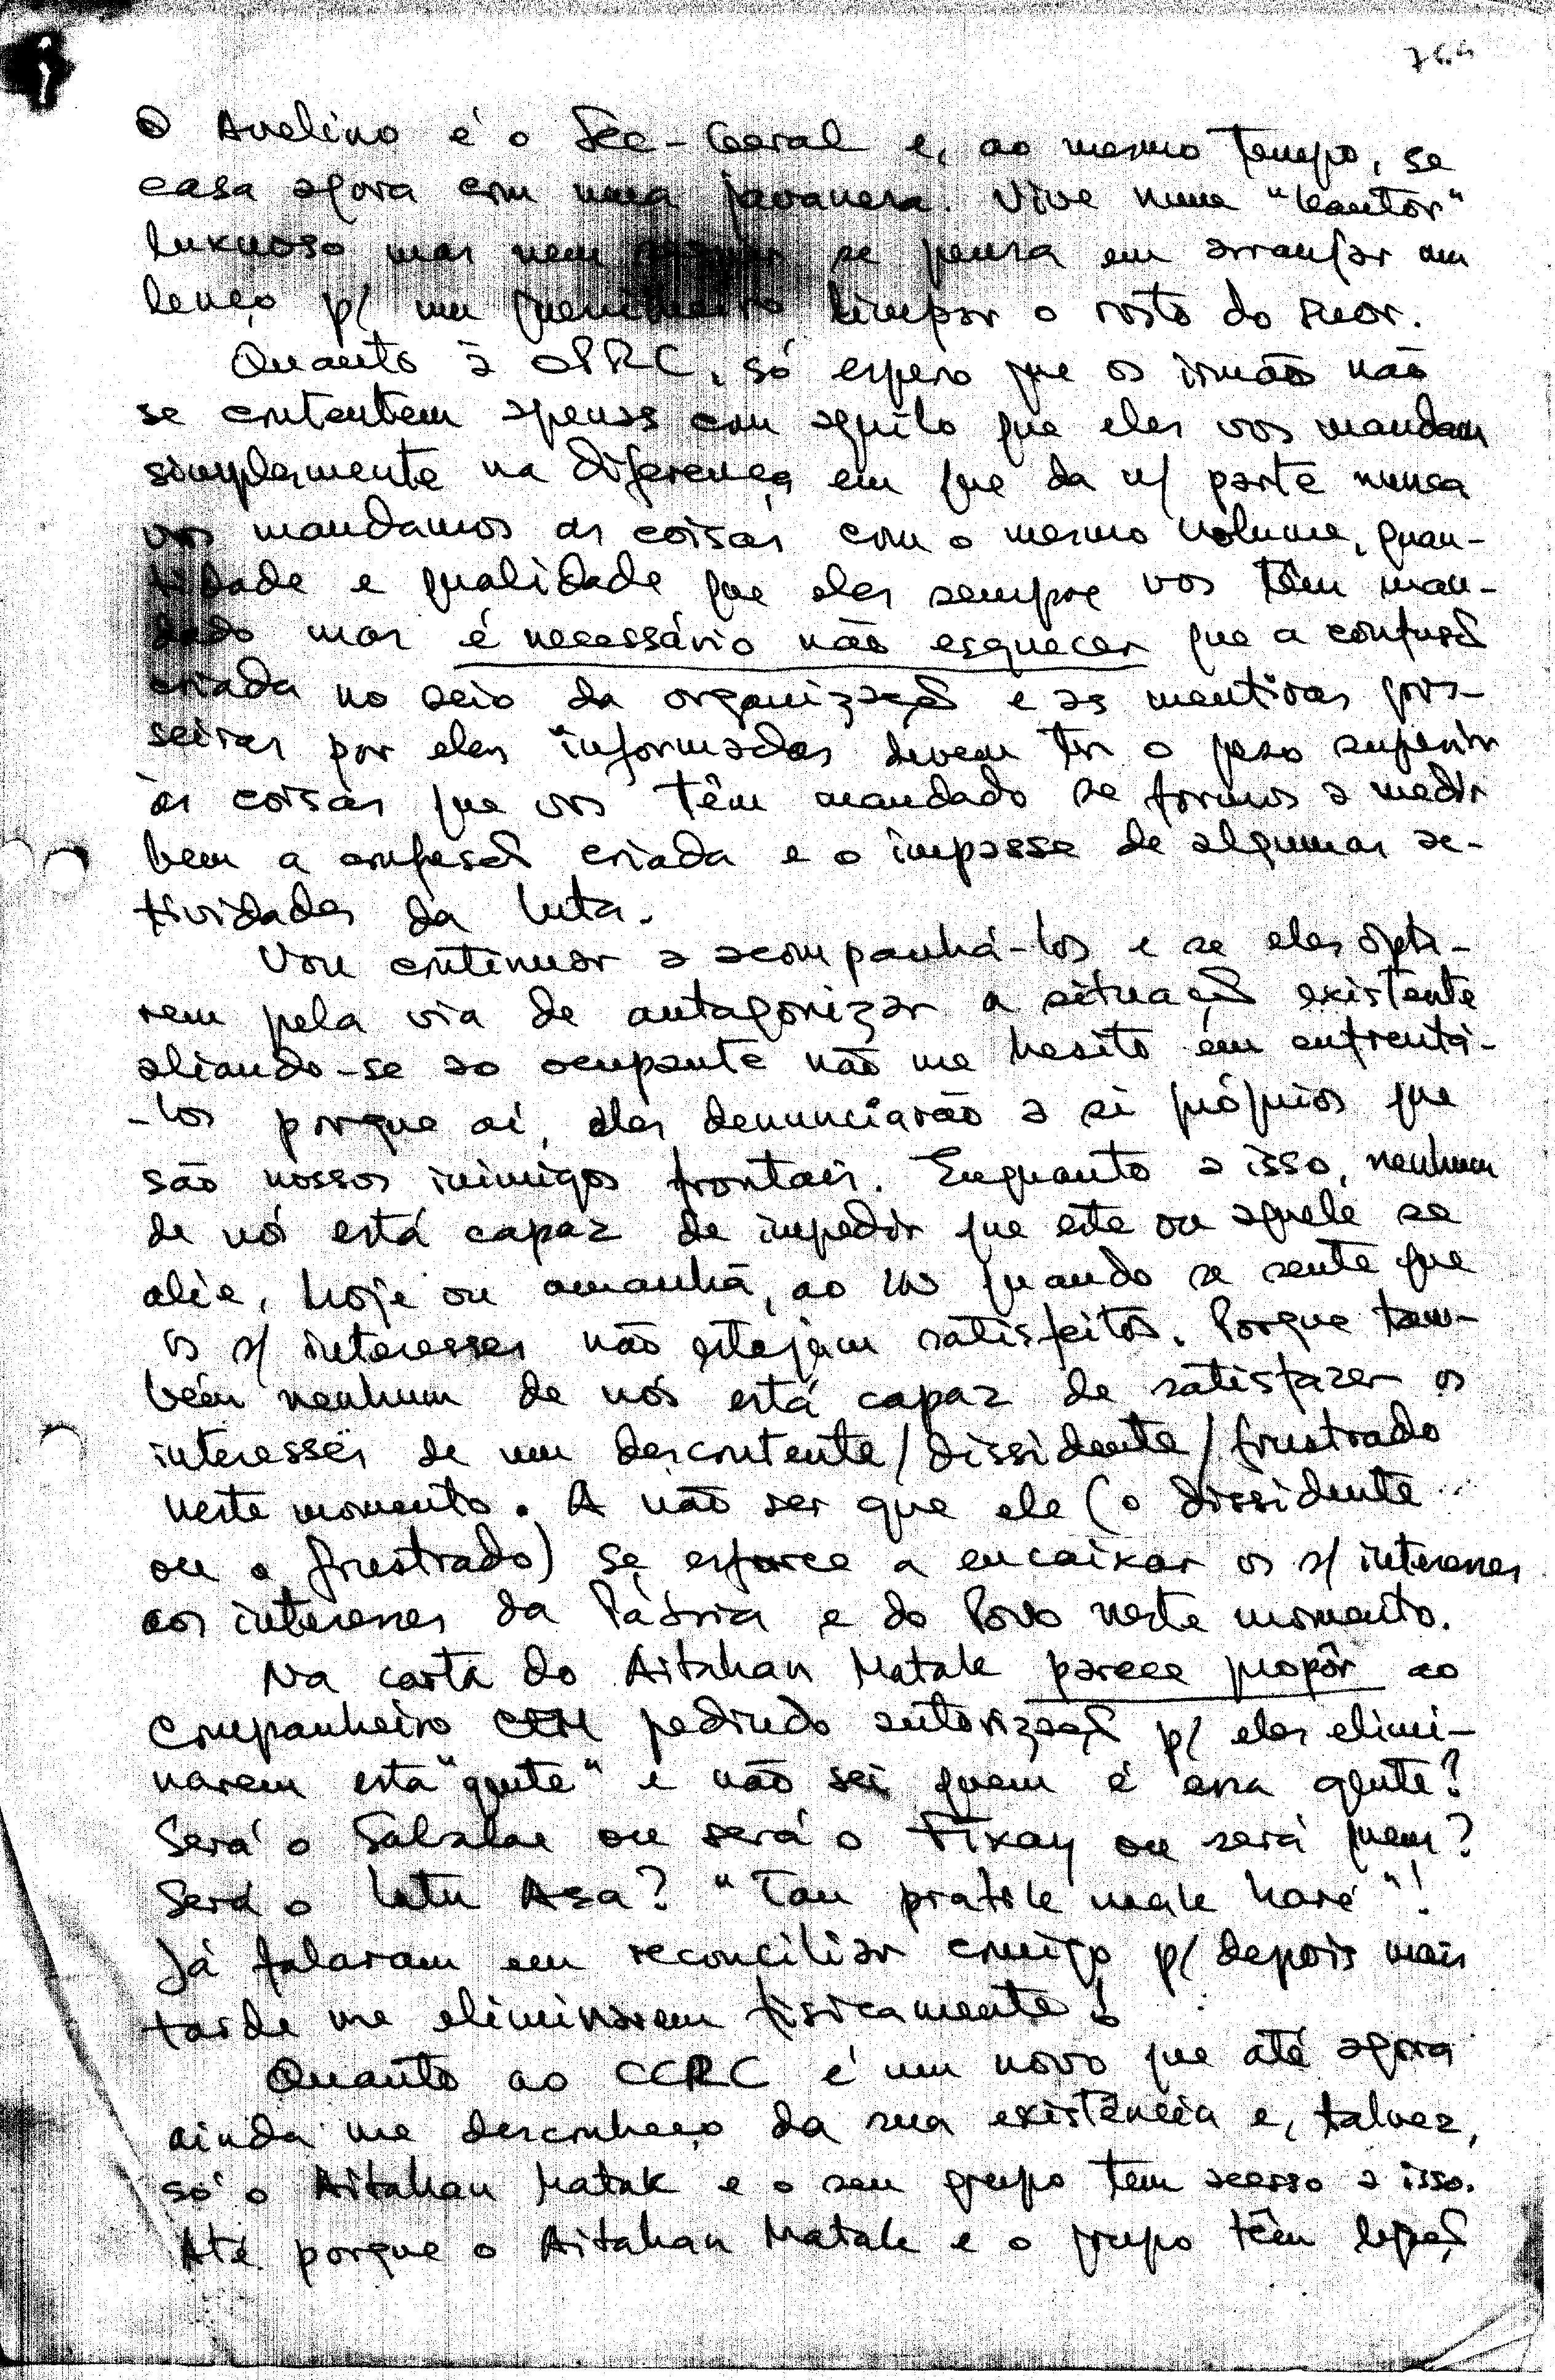 O Avelino é o Sec-Geral e, ao mesmo tempo, se
casa agora com uma javanesa. Vive numa "kantor"
luxuoso mas nem se pensa em arranjar um
lenço p/ um guerrilheiro limpar o rosto do suor.
Quanto à OPRC, só espero que os irmãos não
se contentem apenas com aquilo que eles vos mandam
simplesmente na diferença em que da n/ parte nunca
vos mandamos as coisas com o mesmo volume, quan-
tidade e qualidade que eles sempre vos têm man-
dado mas é necessário não esquecer que a confusã
criada no seio da organizaçã e as mentiras gros-
seiras por eles informadas devem ter o peso superior
às coisas que vos têm mandado se formos a medir
bem a confusã criada e o impasse de algumas ac-
tividades da luta.
Vou continuar a acompanhá-los e se eles opta-
rem pela via de antagonizar a situaçã existente
aliando-se ao ocupante não me hesito em enfrentá-
-los porque aí, eles denunciarão a si próprios que
são nossos inimigos frontais. Enquanto a isso, nenhum
de nós está capaz de impedir que este ou aquele se
alie, hoje ou amanhã, ao in quando se sente que
os s/ interesses não estejam satisfeitos. Porque tam-
bém nenhum de nós está capaz de satisfazer os
interesses de um descontente/dissidente/frustrado
neste momento. A não ser que ele (o dissidente
ou o frustrado) se esforce a encaixar os s/ interesses
aos interesses da Pátria e do Povo neste momento.
Na carta do Aitahan Matak parece propôr ao
Companheiro CEM pedindo autorizaçã p/ eles elimi-
narem esta "gente" e não sei quem é essa gente?
Será o Sabalae ou será o Fixay ou será quem?
Será o Lutu Asa? "Tau pratik mak haré"!
Já falaram em reconciliar comigo p/ depois mais
tarde me eliminarem fisicamente!
Quanto ao CCRC é um novo que até agora
ainda me desconheço da sua existência e, talvez,
só o Aitahan Matak e o seu grupo tem acesso a isso.
Até porque o Aitahan Matak e o grupo têm ligaçã